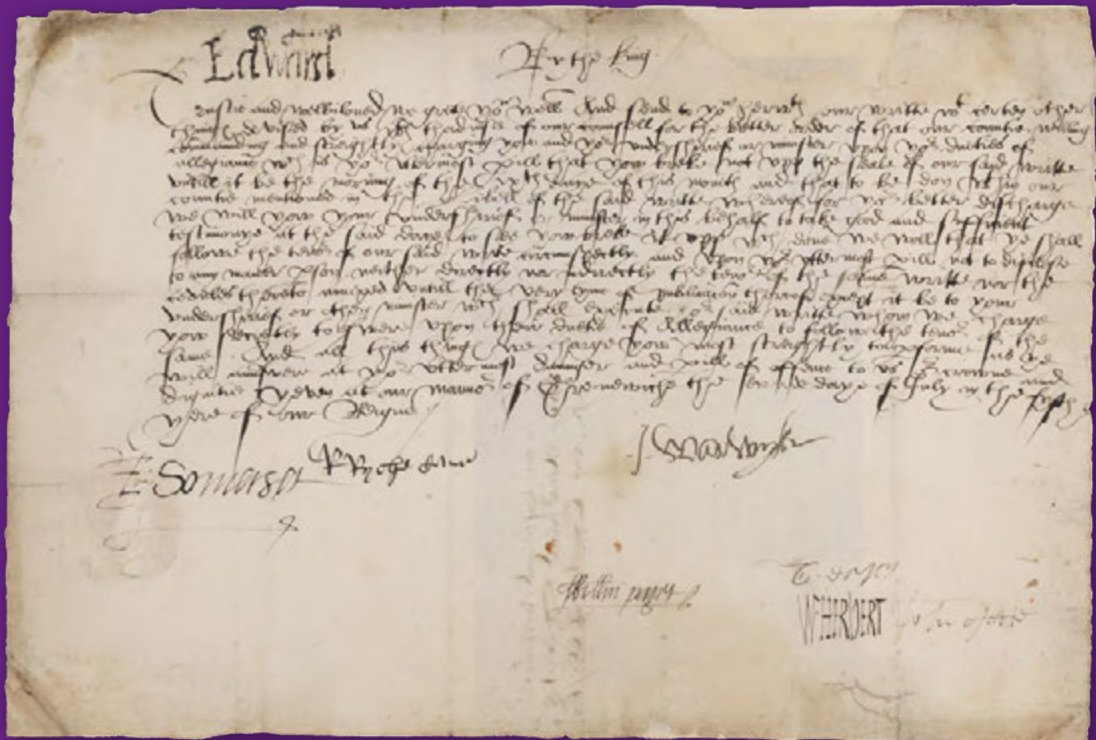 Edward
By the king
Trustie and welbiloved we grete you well And send to you herwth our writte wt certen other
things devised by us wth thadvise of our counsell for the better order of that our countie willing
commanding and streightly charging you and yor undersherief or minister upon yor duties of
allegiaunce wch is yor uttermost perill that you breke not upp the seale of our said writte
untill it be the morning of the daye of this month and that to be don wthin our
countie mentioned in the of the said writte wherof for yor better discharge
we will you your undersherief or minister in this behalf to take good and sufficient
testimonye at the said daye to see you breke it upp wch done we will that ye shall
followe the tenor of our said writte circumspectly and upon yor uttermost perill not to disclose
to any maner pson neither directly nor indirectly the tenor of the same writte nor the
cedules therto annexed untill the very tyme of publicacion therof except it be to your
undersherief or other minister wch shall execute or said writte whom we charge
you secretly to swere upon their duties of Allegiance to followe the tenor of the
same And all this thing we charge you most streightly to perfourme as ye
will aunswere at yor uttermost daunger and perill of offence to us or crowne and
dignitie Yeven at our manor of Grenewiche the daye of July in the fyfth
yere of our Reigne
E. Somerset R Ryche canc J. Warwyk
William paget
T. darcy
W HERBERT